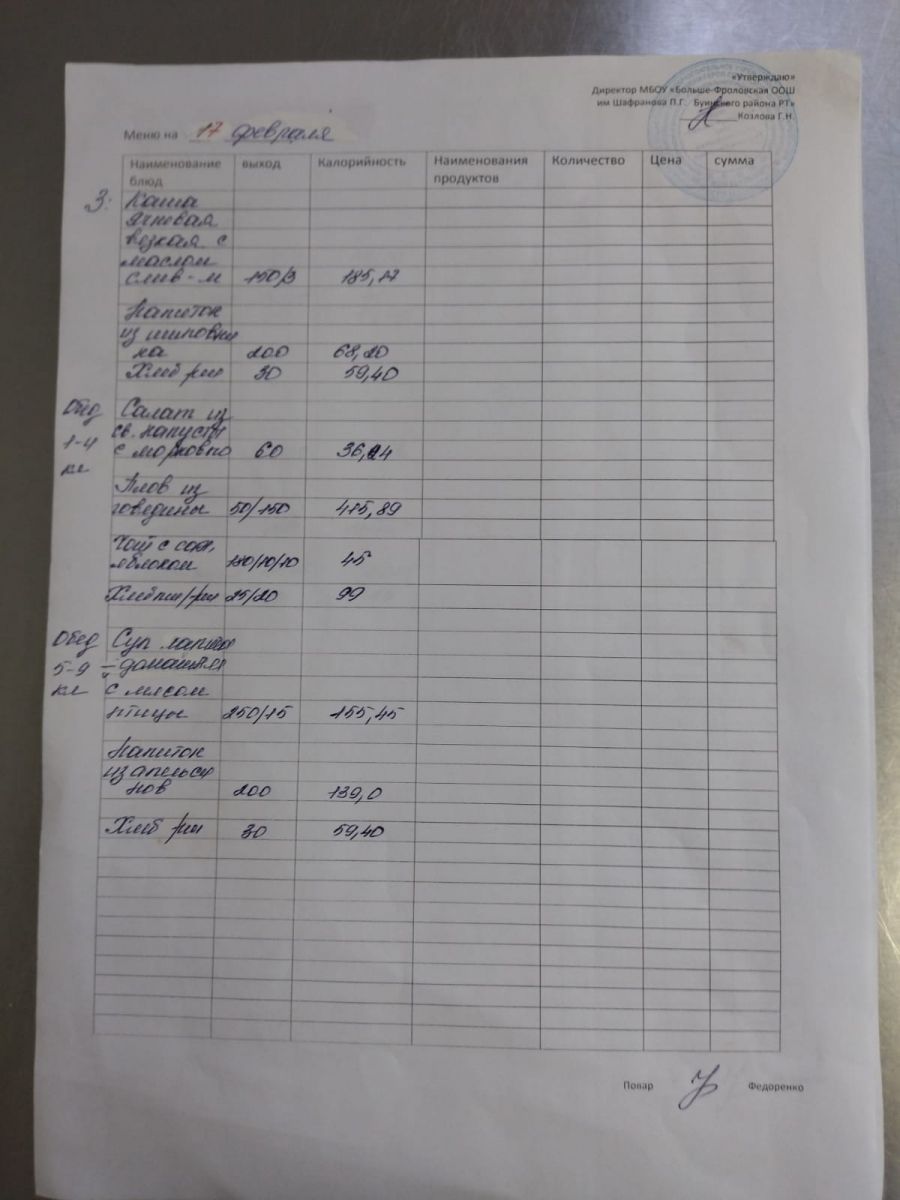 «Утверждаю»
Директор МБОУ «Больше-Фроловская ООШ
им Шафранова П.Г. Буинского района РТ»
Козлова Г.Н.
Меню на 17 февраля
Наименование блюд выход Калорийность Наименования продуктов Количество Цена сумма
З: Каша
ячневая
вязкая с
маслом
слив-м 150/3 185,17
Напиток
из шиповни
ка 200 68,20
Хлеб рж 30 59,40
Обед Салат из
1-4 св. капусты
кл с морковью 60 36,24
Плов из
говядины 50/150 415,89
Чай с сах,
яблоком 180/10/10 45
Хлеб пш/рж 25/20 99
Обед Суп лапша
5-9 – домашняя
кл с мясом
птицы 250/15 155,45
Напиток
из апельси
нов 200 139,0
Хлеб рж 30 59,40
Повар Федоренко